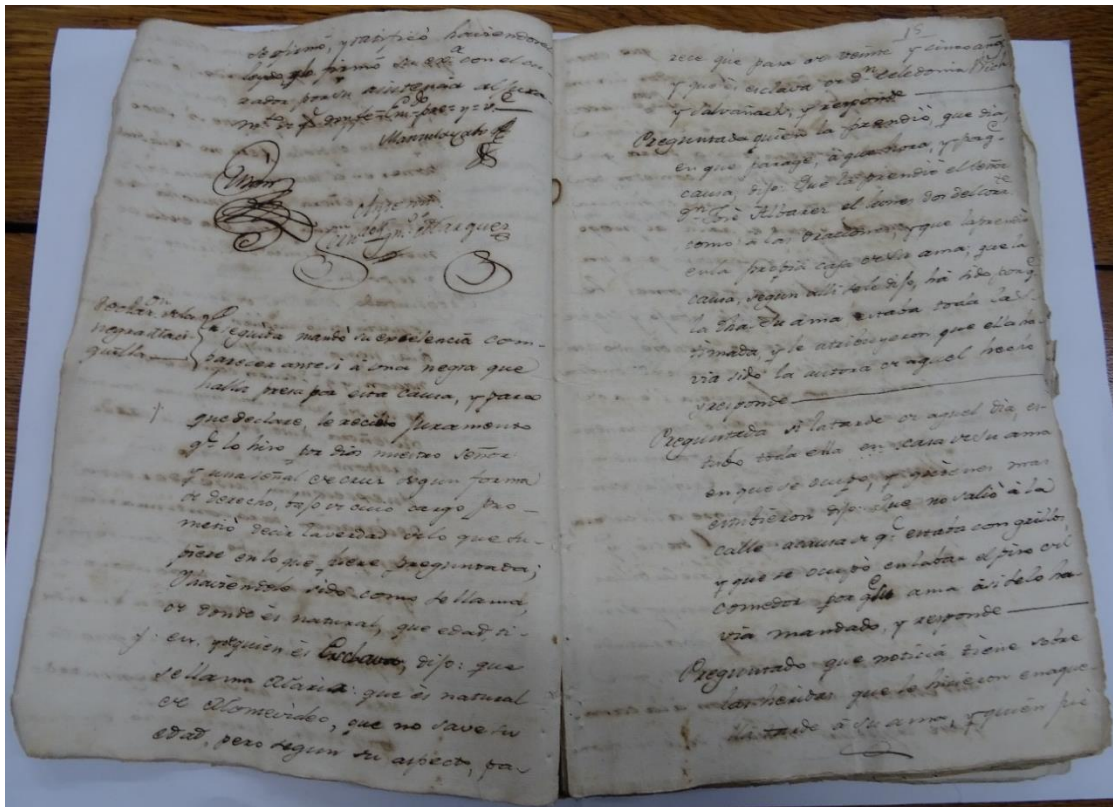 se afirmó, y ratificó haviendosele
leydo, y lo firmó Su Exª con el cu-
rador, por su asistencia al jura-
Manuel
Ante mi
Marquez
Declar.on dela
negra Maria
En seguida mandó su excelencia com-
parecer antesi à una negra que
halla presa por esta causa, y para
que declare, le recibió Juramento
q.e lo hizo por Dios nuestro señor
y una señal de cruz segun forma
de derecho, bajo de cuio cargo pro-
metió decir la verdad delo que su-
piese en lo que fuese preguntada;
Y haviendole sido como se llama,
de donde és natural, que edad ti-
ene, y de quien és Esclava, dijo: que
se llama Maria: que és natural
de Montevideo, que no save su
edad, pero segun su aspecto, pa-
15
rece que pasa de veinte y cinco años
y que és esclava de D.a Celedonia Wich
y Salvañach, y responde
Preguntada quien la prendió, que dia,
en que parage, à que hora, y porq.e
causa, dijo: Que la prendió el señor
D.n José Alvarez el lunes dos del corr.te
como à las oraciones, y que la prendió
en la propia casa de su ama; que la
causa, segun alli se le dijo, há sido porq.e
la dha su ama estaba toda las-
timada, y le atribuyeron que ella ha-
via sido la autora de aquel hecho
y responde
Preguntada si la tarde de aquel dia, es-
tubo toda ella en casa de su ama
en que se ocupó, y quienes mas
estubieron dijo: Que no salió à la
calle acausa de q.e estaba con grillos,
y que se ocupó en labar el piso del
comedor por q.e su ama asi selo ha-
via mandado, y responde
Preguntado que noticia tiene sobre
las heridas que le hicieron en aque-
lla tarde à su ama, y quien fue